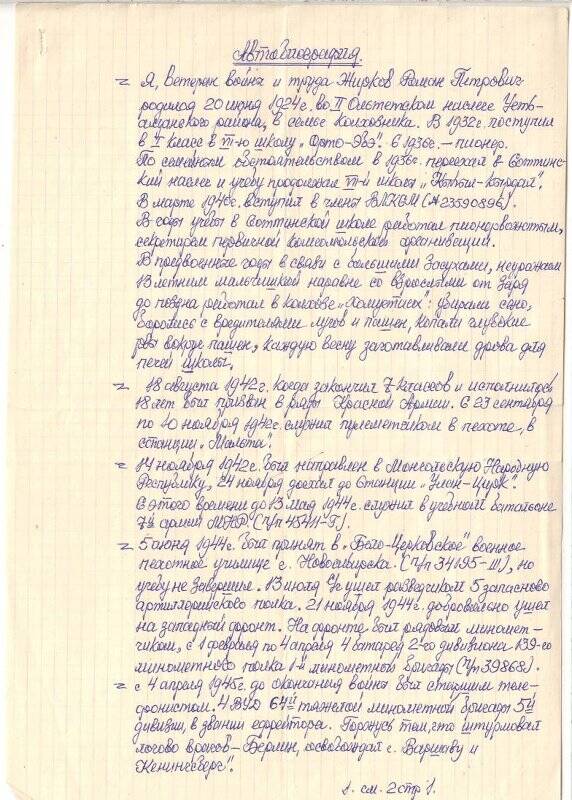 Автобиография.
Я, Ветеран войны и труда Жирков Роман Петрович
родился 20 июня 1924г. во II Ольтетском наслеге Усть-
алданского района, в семье колхозника. В 1932г. поступил
в I класс в VII-ю школу „Орто-Эбэ". С 1936г. – пионер.
По семейным обстоятельством в 1936г. переехал в Соттин-
ский наслег и учебу продолжал VII-й школы
В марте 1940г. вступил в члены ВЛКСМ (№23590896).
В годы учебы в Соттинской школе работал пионервожатым,
секретарем первичной комсомольской организации.
В предвоенные годы в связи с большими засухами, неурожаем
13 летним мальчишкой наровне со взрослыми от заря
до поздна работал в колхозе : убирали сено,
боролись с вредителями лугов и пашен, копали глубокие
рвы вокруг пашен, каждую весну заготавливали дрова для
печей школы.
18 августа 1942г. когда закончил 7 классов и исполнилось
18 лет был призван в ряды Красной Армии. С 23 сентября
по 10 ноября 1942г. служил пулеметчиком в пехоте, в
станции „Мальта".
14 ноября 1942г. был направлен в Монгольскую Народную
Республику, 24 ноября доехал до станции
С этого времени до 13 мая 1944г. служил в учебном батальоне
7й армии МНР (Ч/п 45411-Г).
5 июня 1944г. был принят в „Бело-Церковское" военное
пехотное училище г. Новосибирска. (Ч/п 34195-Ш), но
учебу не завершил. 13 июля ушел разведчиком 5 запасново
артиллерийского полка. 21 ноября 1944г. добровольно ушел
на западный фронт. На фронте был рядовым миномет-
чиком, с 1 февраля по 4 апреля 4 батареи 2-го дивизиона 139-го
минометного полка 1-й минометной бригады (Ч/п 39868).
с 4 апреля 1945г. до окончания войны был старшим теле-
фонистом. 4 ВУД 64й тяжелой минометной бригады 5й
дивизии, в звании ефрейтора. Горжусь тем, что штурмовал
логово врагов – Берлин, освобождал г. Варшаву и
Кенингсберг".
1. см. 2 стр 1.